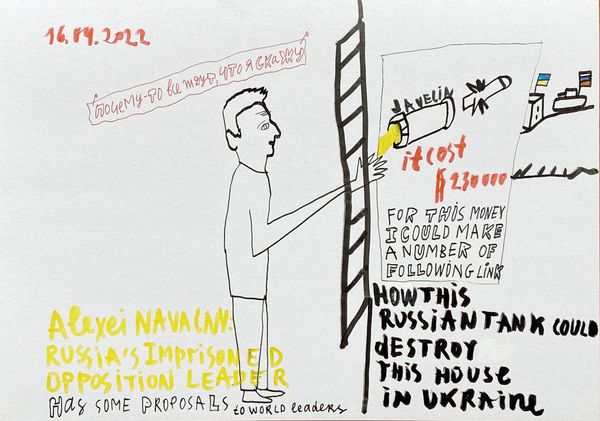 16.04.2022
почему-то все ждут, что я скажу
JAVELIN
it cost
$ 230 000
FOR THIS MONEY
I COULD MAKE
A NUMBER OF
FOLLOWING LINK
HOW THIS
RUSSIAN TANK COULD
dESTROY
THIS HOUSE
IN UKRAINE
Alexei NAVALNY:
RUSSIA'S IMPRISONED
OPPOSITION LEADER
HAS SOME PROPOSALS to WORLD leaders